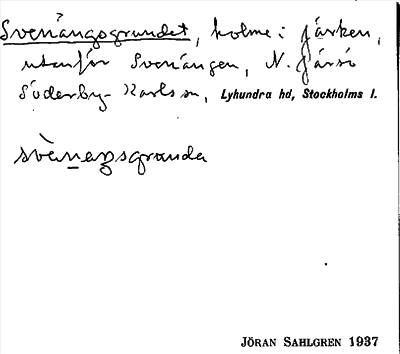 Svenängsgrundet, holme i Järken,
utanför Svenängen, N. Järsö
Söderby-Karls sn, Lyhundra hd, Stockholms l.
svènaŋsgrunda
JÖRAN SAHLGREN 1937